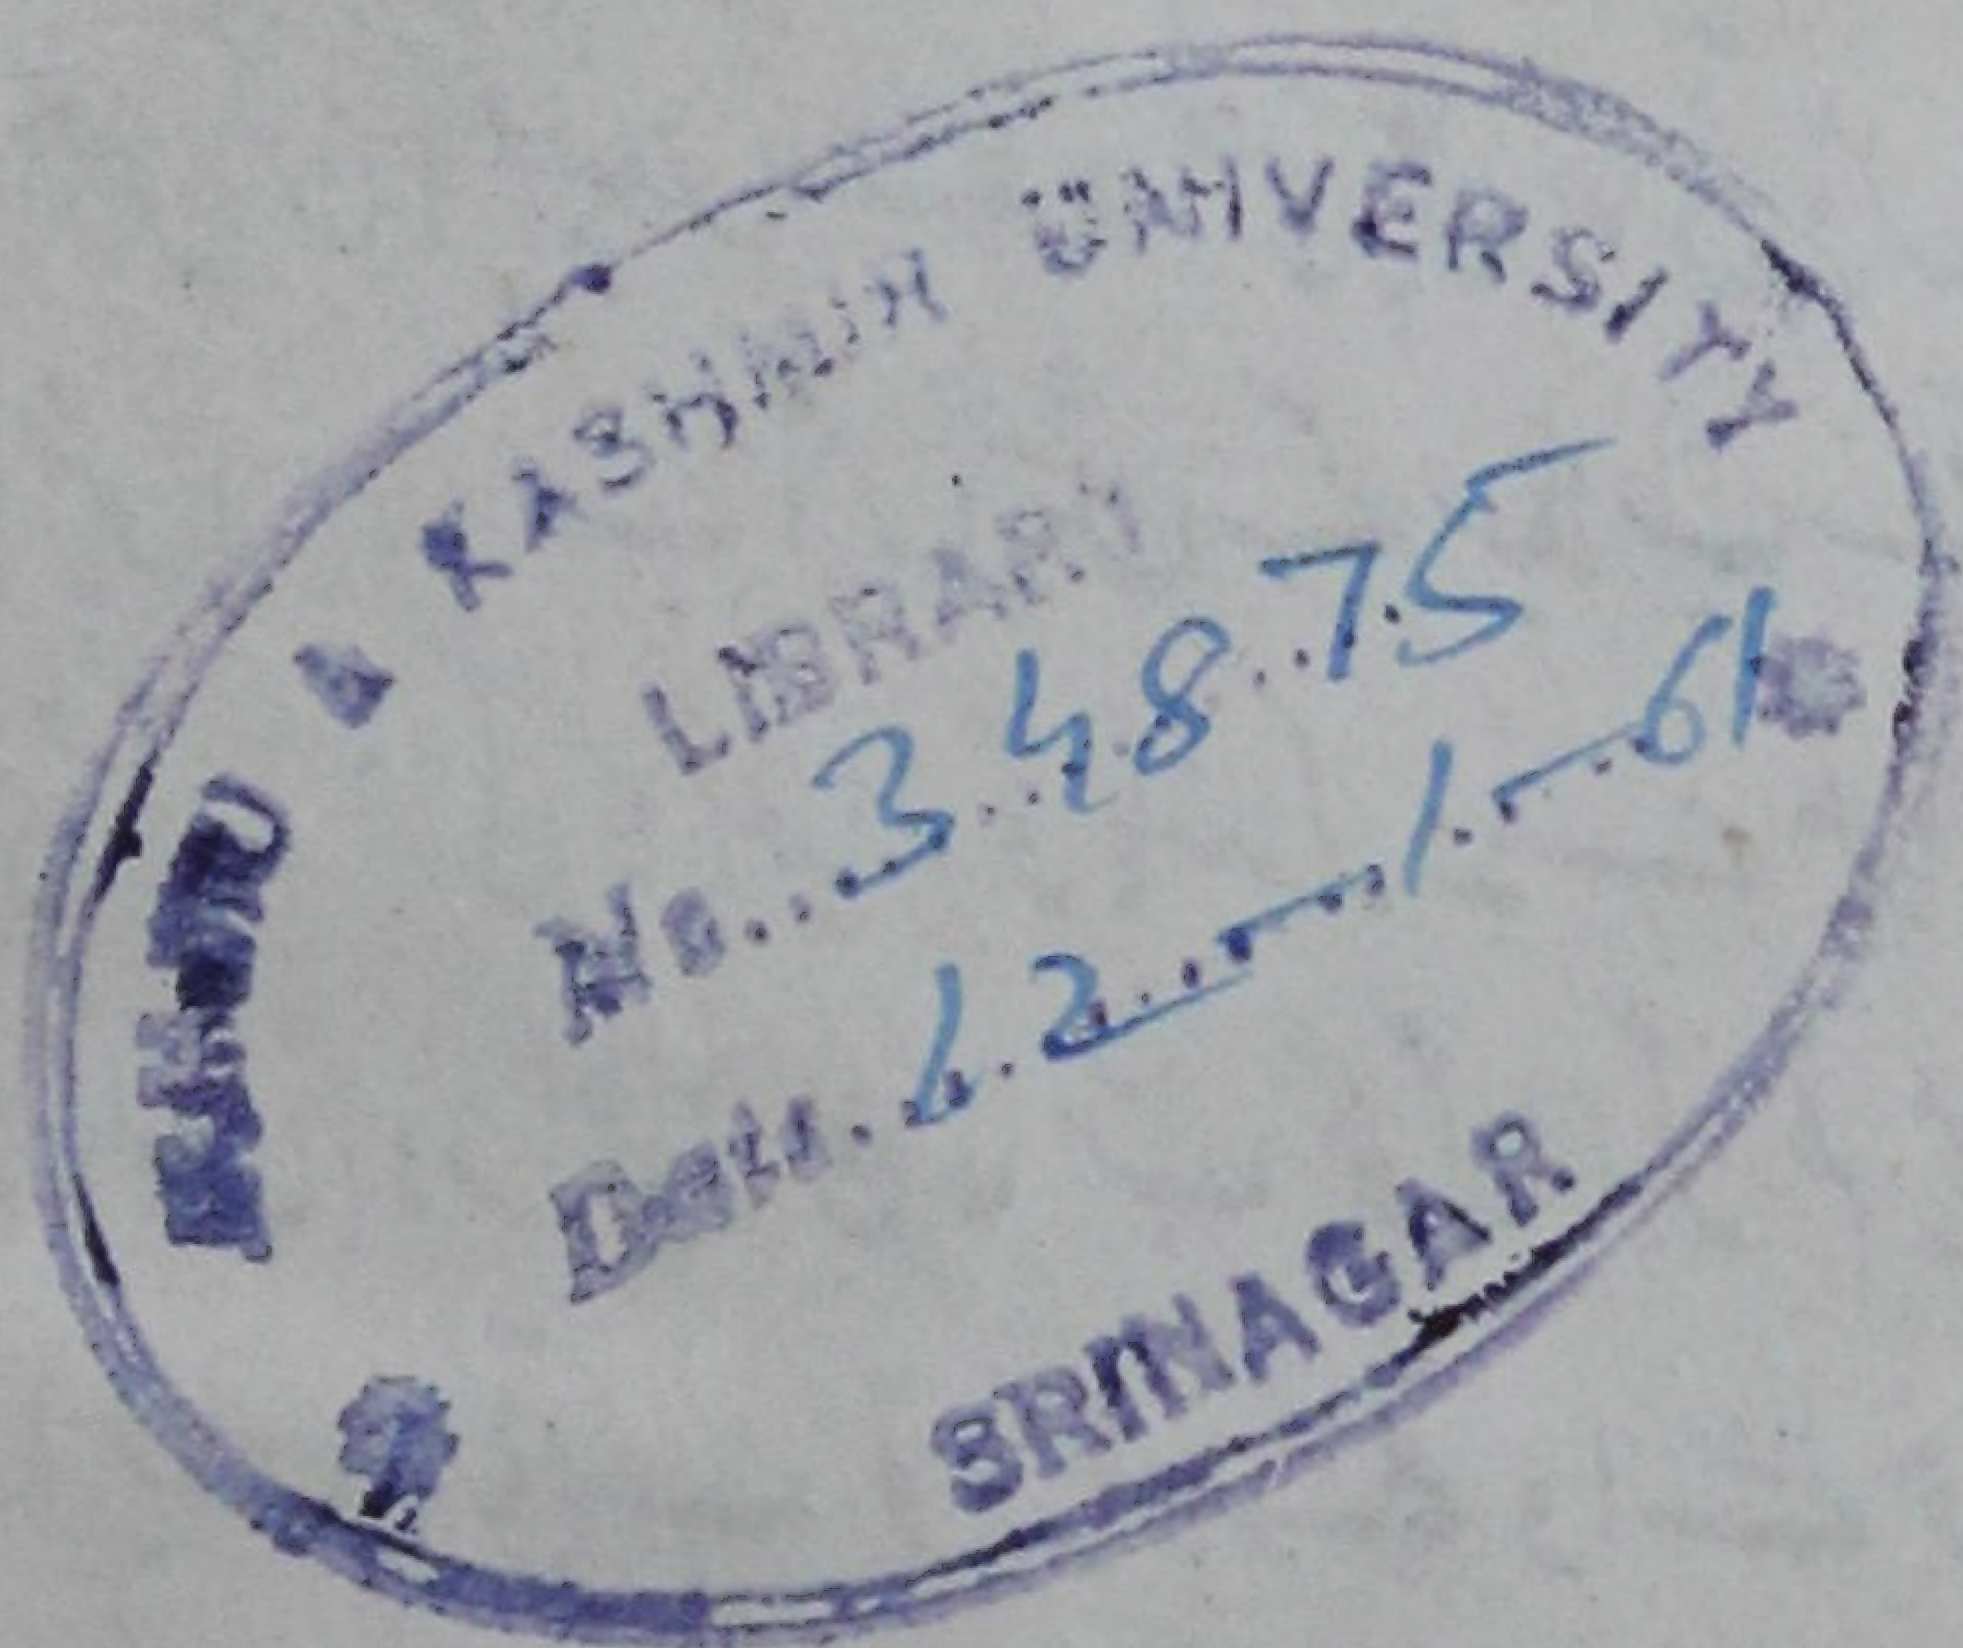 JAMMU & KASHMIR UNIVERSITY
LIBRARY
No. 34875
Date. 12-1-61
SRINAGAR